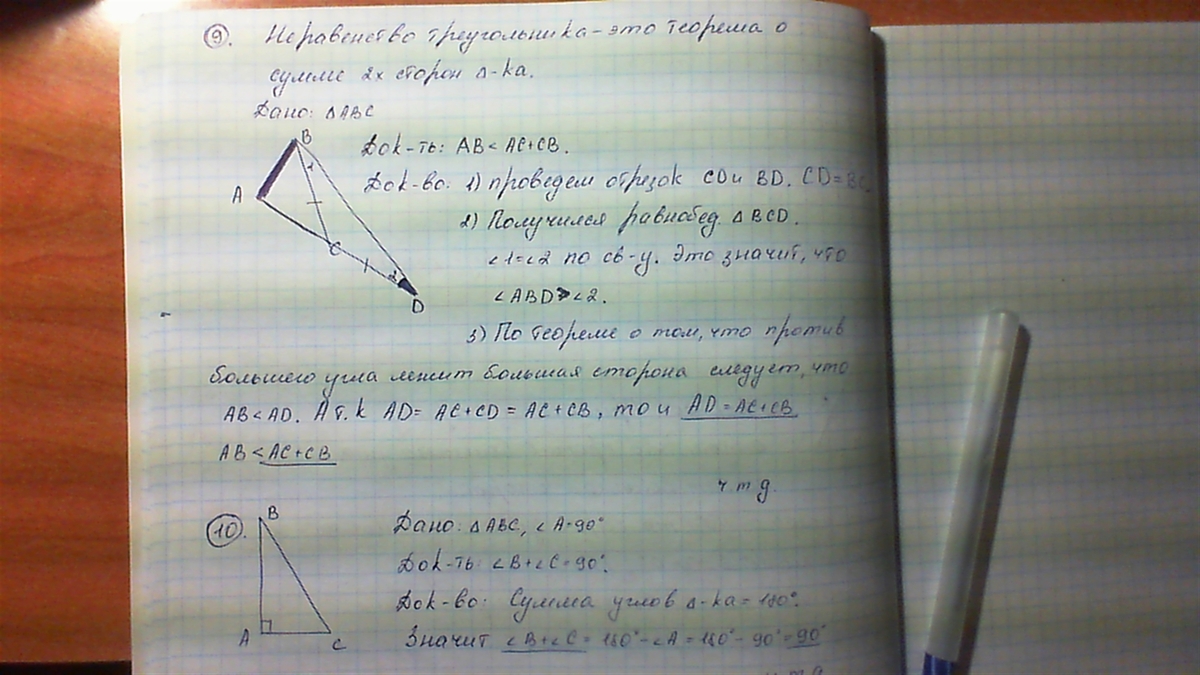 9. Неравенство треугольника - это теорема о
сумме 2х сторон Δ-ka.
Дано: ΔABC
Док-ть: AB < AC+CB.
Док-во: 1) проведем отрезок CD и BD. CD=BC.
2) Получился равнобед. ΔBCD.
∠1=∠2 по св-у. Это значит, что
∠ABD>∠2.
3) По теореме о том, что против
большего угла лежит большая сторона следует, что
AB<AD. А т.к AD= AC+CD = AC+CB, то и AD=AC+CB
AB<AC+CB
ч.т.д.
B
1
A
C
2
D
10.
Дано: ΔABC, ∠A=90°
Док-ть: ∠B+∠C=90°.
Док-во: Сумма углов Δ-ka=180°.
Значит ∠B+∠C=180°-∠A=180°-90°=90°
B
A
C